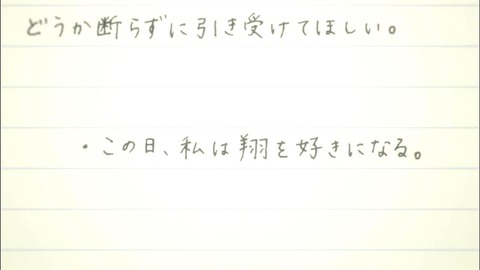 どうか断らずに引き受けてほしい。
・この日、私は翔を好きになる。